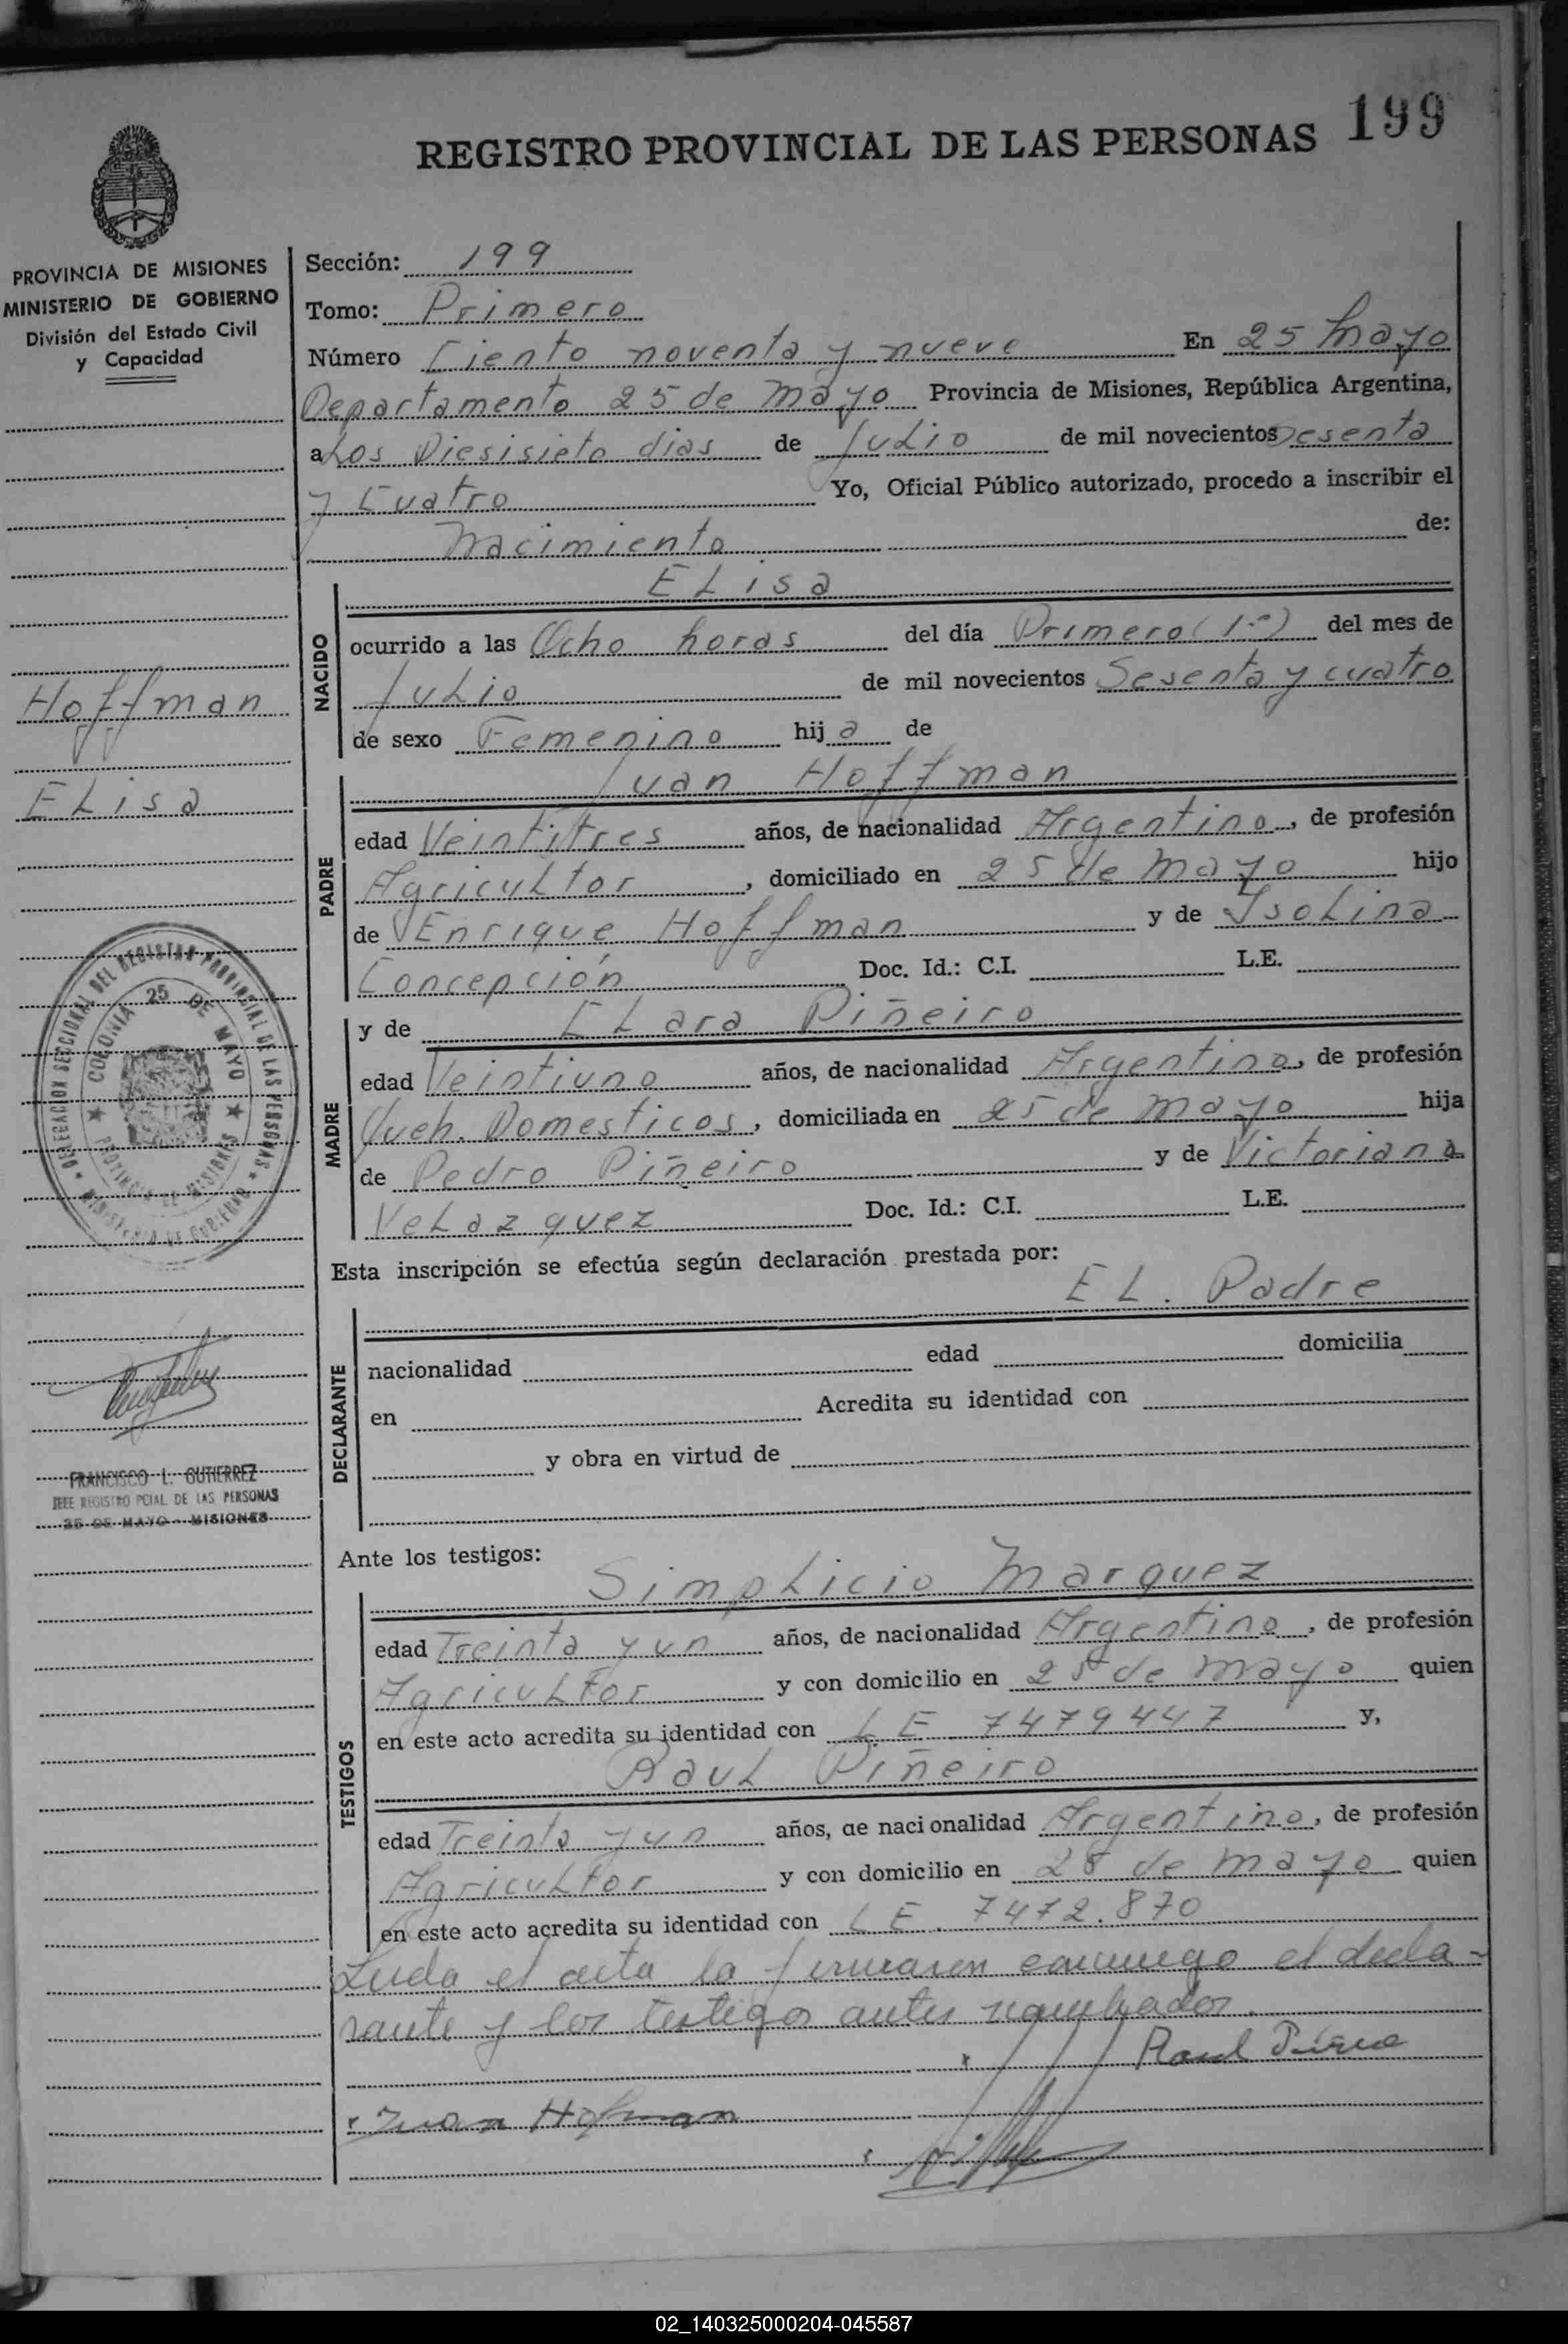 199
REGISTRO PROVINCIAL DE LAS PERSONAS
PROVINCIA DE MISIONES
MINISTERIO DE GOBIERNO
División del Estado Civil
y Capacidad
Hoffman
Elisa
DELEGACION SECCIONAL DEL REGISTRO PROVINCIAL DE LAS PERSONAS
MINISTERIO DE GOBIERNO
COLONIA 25 DE MAYO
PROVINCIA DE MISIONES
FRANCISCO L. GUTIERREZ
JEFE REGISTRO PCIAL DE LAS PERSONAS
25 DE MAYO - MISIONES
Sección: 199
Tomo: Primero
Número Ciento noventa y nueve En 25 Mayo
Departamento 25 de Mayo Provincia de Misiones, República Argentina,
a Los Diesisiete dias de Julio de mil novecientos sesenta
y Cuatro Yo, Oficial Público autorizado, procedo a inscribir el
Nacimiento de:
Elisa
NACIDO
ocurrido a las Ocho horas del día Primero (1º) del mes de
Julio de mil novecientos Sesenta y cuatro
de sexo Femenino hija de
Juan Hoffman
PADRE
edad Veintitres años, de nacionalidad Argentino, de profesión
Agricultor, domiciliado en 25 de Mayo hijo
de Enrique Hoffman y de Isolina
Concepción Doc. Id.: C.I. L.E.
y de Clara Piñeiro
MADRE
edad Veintiuno años, de nacionalidad Argentina, de profesión
Queh. Domesticos, domiciliada en 25 de Mayo hija
de Pedro Piñeiro y de Victoriana
Velazquez Doc. Id.: C.I. L.E.
Esta inscripción se efectúa según declaración prestada por:
El. Padre
DECLARANTE
nacionalidad edad domicilia
en Acredita su identidad con
y obra en virtud de
Ante los testigos:
Simplicio Marquez
TESTIGOS
edad Treinta y un años, de nacionalidad Argentino, de profesión
Agricultor y con domicilio en 25 de mayo quien
en este acto acredita su identidad con L E 7479447 y,
Raul Piñeiro
edad Treinta y un años, de nacionalidad Argentino, de profesión
Agricultor y con domicilio en 25 de mayo quien
en este acto acredita su identidad con L E. 7472.870
Leida el acta la firmaron conmigo el decla-
rante y los testigos antes nombrados.
Raul
Juan Hofman
02_140325000204-045587